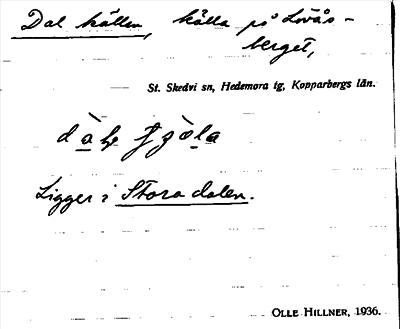 Dal källen, källa på Lövås-
berget,
St. Skedvi sn, Hedemora tg, Kopparbergs län.
Ligger i Stora dalen.
OLLE HILLNER, 1936.